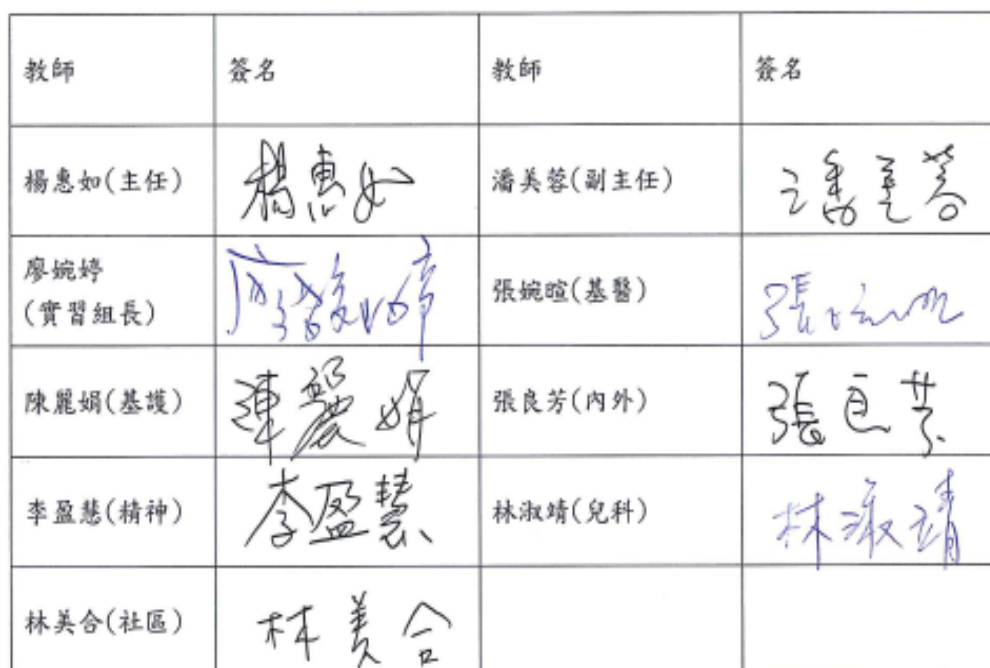 教師 簽名 教師 簽名
楊惠如(主任) 楊惠如 潘美蓉(副主任) 潘美蓉
廖婉婷
(實習組長) 廖婉婷 張婉暄(基醫) 張婉暄
陳麗娟(基護) 陳麗娟 張良芳(內外) 張良芳
李盈慧(精神) 李盈慧 林淑靖(兒科) 林淑靖
林美合(社區) 林美合